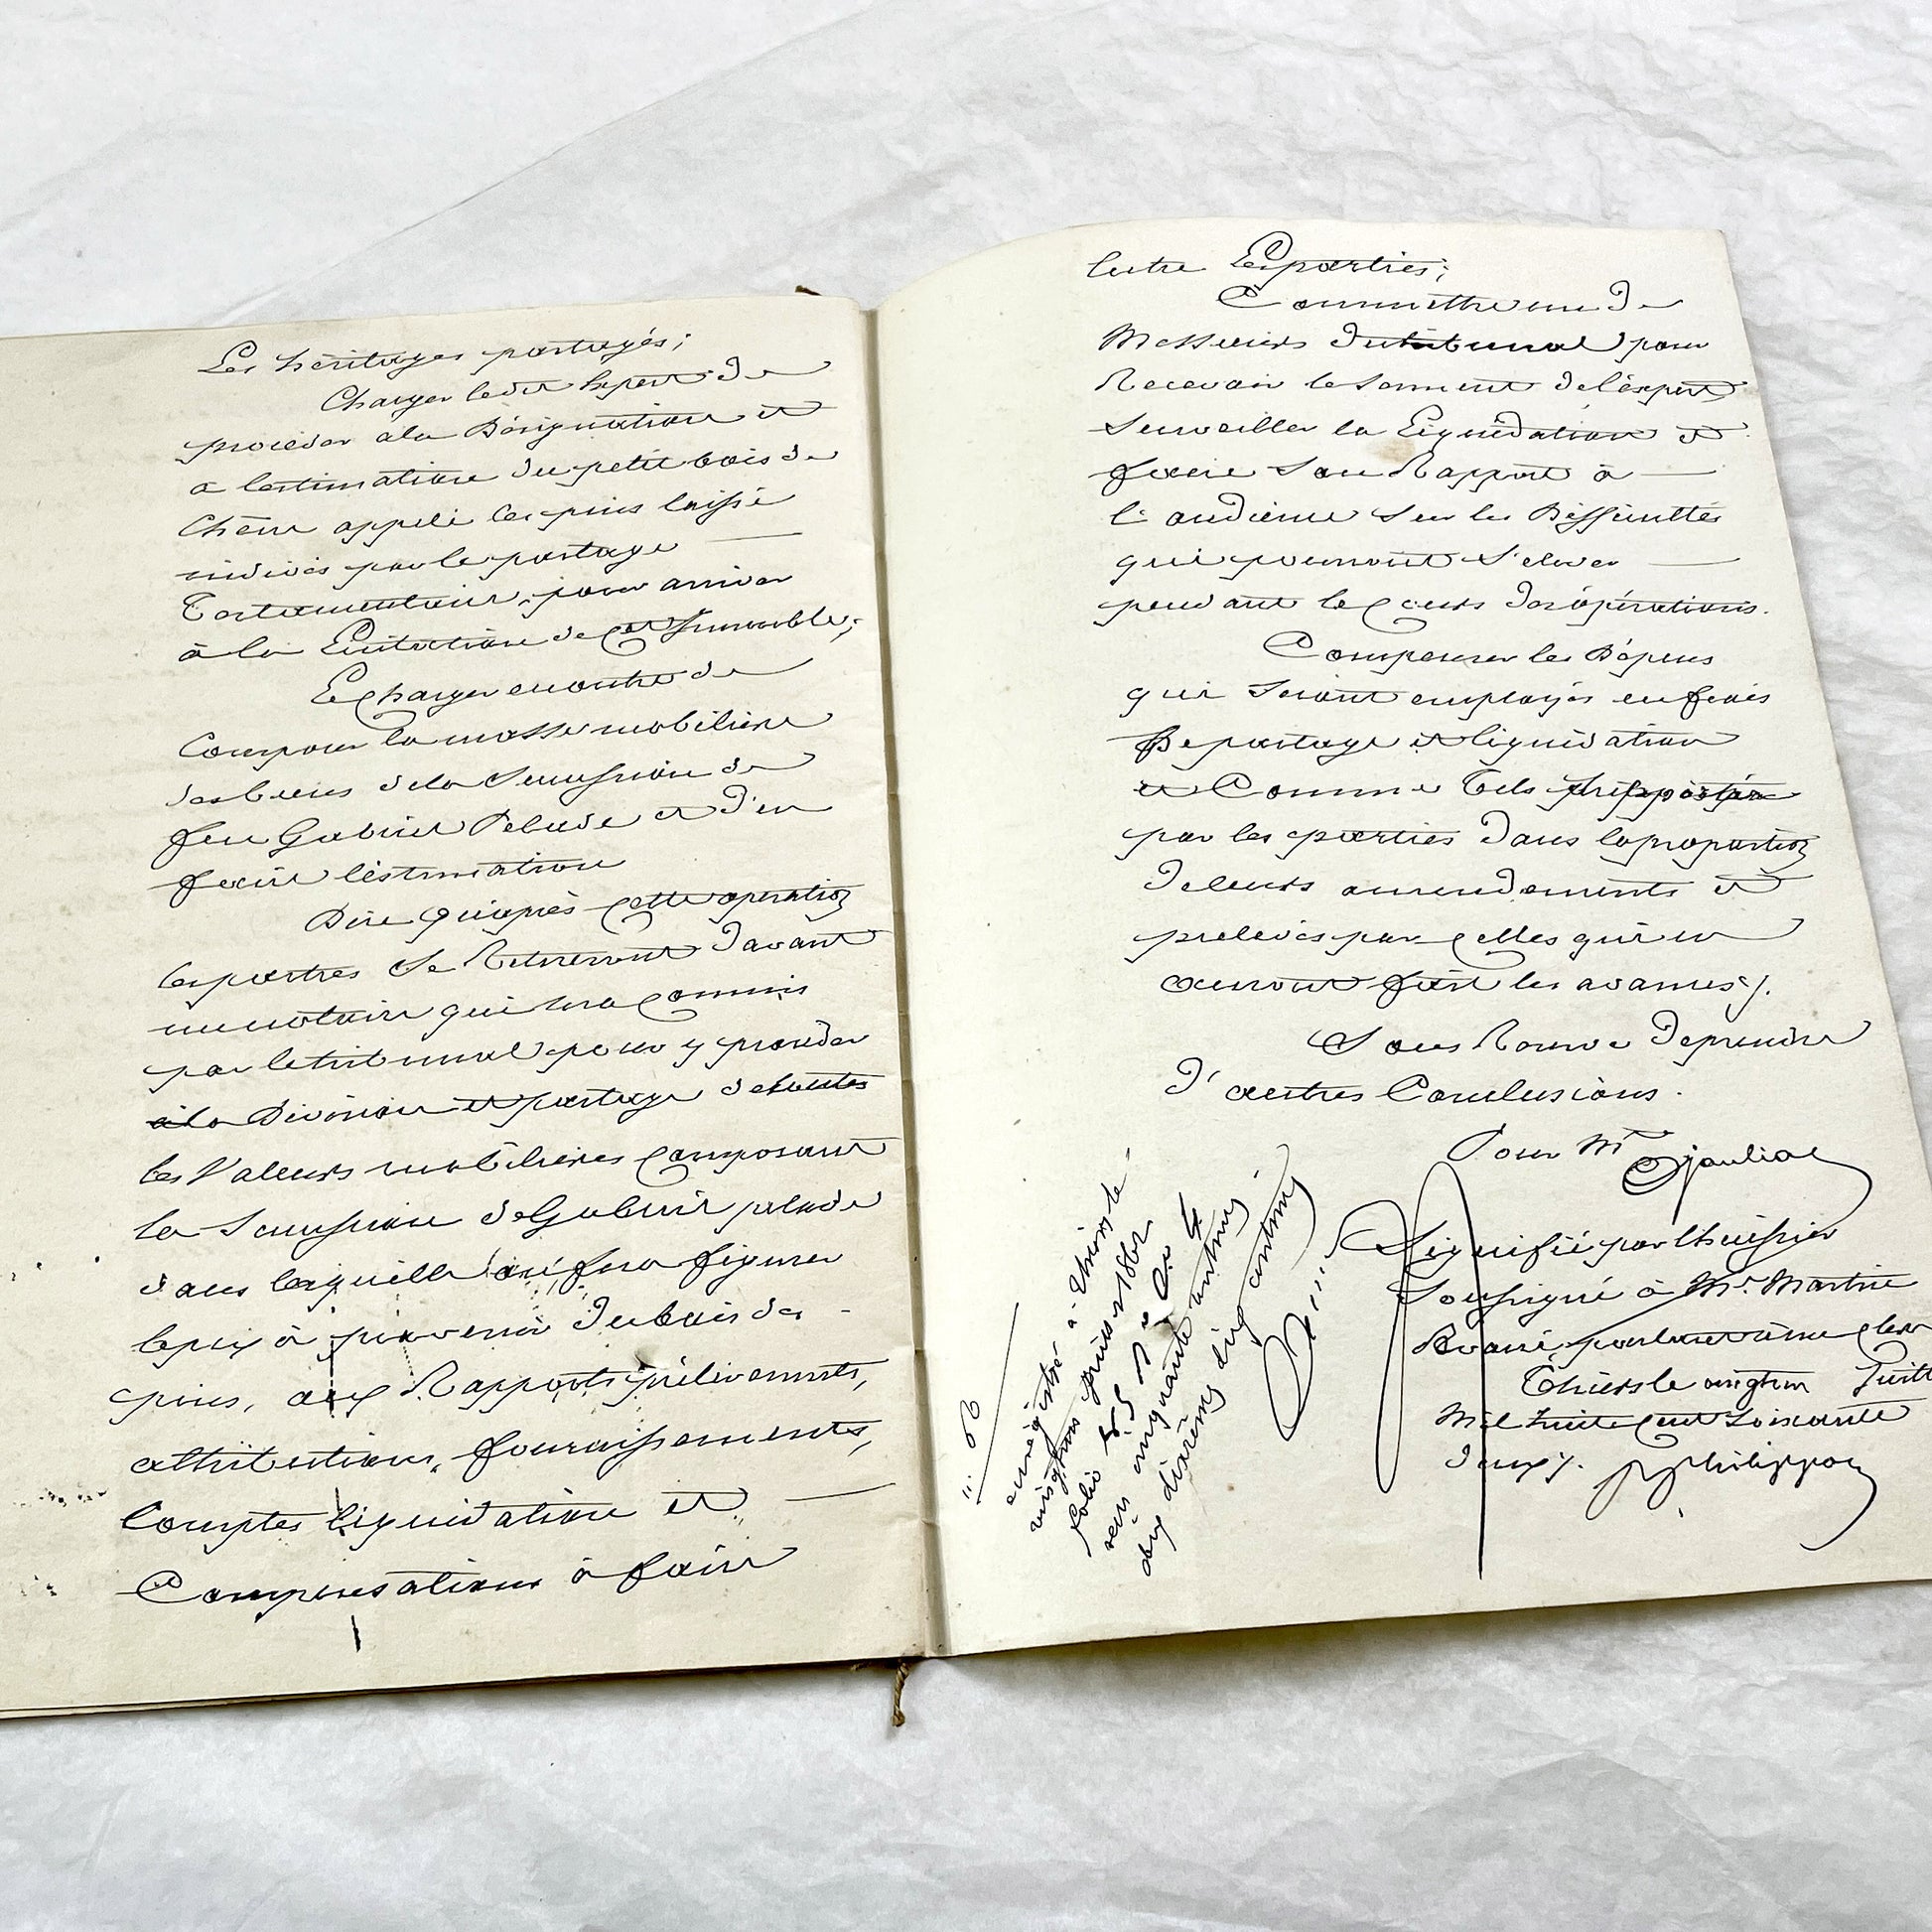 Les héritages partagés;
Charger ledit Expert de
procéder à la Désignation et
à l'estimation du petit bois de
Chêne appelé les pins laissé
indivis par le partage
Testamentaire, pour arriver
à la Licitation de cet Immeuble;
Le charger en outre de
Composer la masse mobilière
des biens de la Succession de
feu Gabriel Pelade et d'en
faire l'estimation
Dire qu'après cette opération
les parties se Retireront Davant
un notaire qui sera Commis
par le tribunal pour y procéder
à la Division et partage de toutes
les Valeurs mobilières Composant
la Succession de Gabriel pelade
dans laquelle on fera figurer
le prix à provenir du bois des
pins, aux Rapports, prélèvements,
attributions, fournissements,
Comptes liquidation et
Compensations à faire
Entre Les parties;
Commettre un De
Messieurs Du tribunal pour
Recevoir le serment de l'expert
Surveiller la Liquidation et
faire son Rapport à
l'audience sur les Difficultés
qui pourront s'elever
pendant le Cours des opérations.
Compenser les Dépens
qui seront employés en frais
De partage et liquidation
et Comme Tels supportés
par les parties Dans la proportion
De leurs amendements et
prélevés par Celles qui en
auront fait les avances /.
Sous Réserve De prendre
D'autres Conclusions.
Pour Me
Signifié par l'huissier
Soussigné à Me. Martin
Avoué, parlant à un clerc
Thiers le vingt un Juill
Mil huit Cent Soixante
Deux /. Philippon
enregistré à Thiers le
vingt un juillet 1862
folio 85 Ro Ce 4
reçu cinquante centimes
dix dixièmes cinq centimes